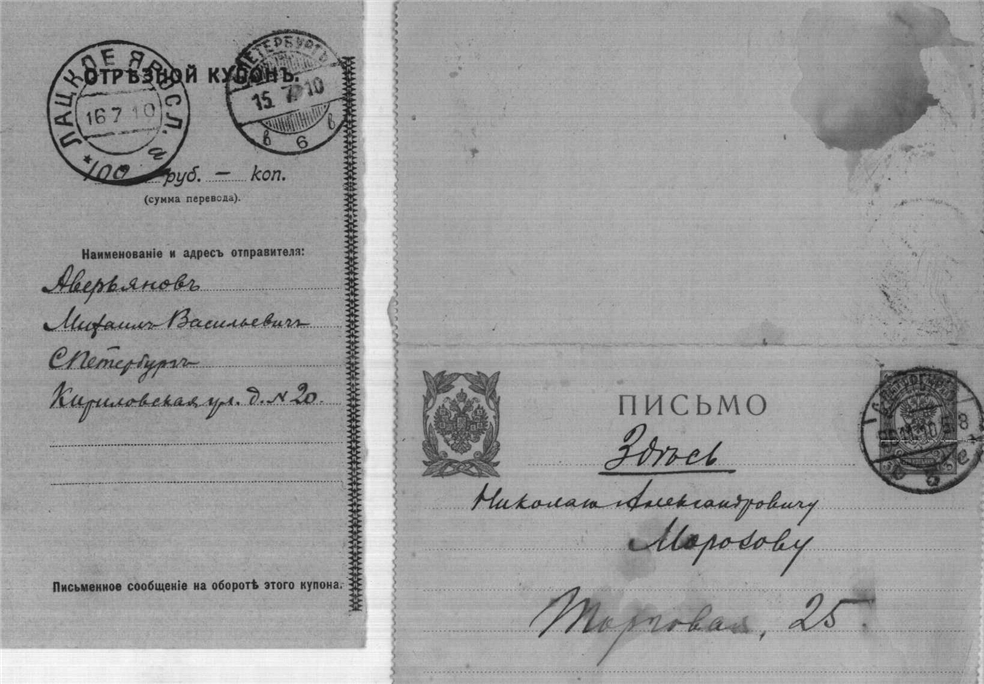 ЛАЦКОЕ ЯРОСЛ. г.
16 7 10
С.ПЕТЕРБУРГЪ
15. 7 10
в 6 в
ОТРѢЗНОЙ КУПОНЪ.
100 руб. — коп.
(сумма перевода).
Наименованіе и адресъ отправителя:
Аверьяновъ
Михаилъ Васильевичъ
СПетербургъ
Кириловская ул. д. № 20.
Письменное сообщеніе на оборотѣ этого купона.
ПИСЬМО
Здѣсь
Николаю Александровичу
Морозову
Торговая, 25